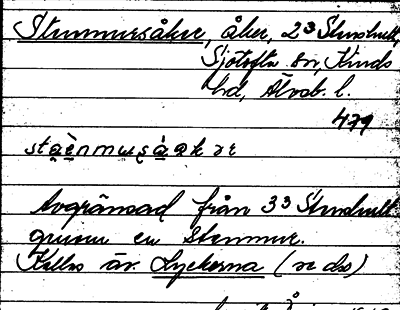 Stenmursåker, åker, 2³ Stenshult,
Sjötofta sn, Kinds
hd, Älvsb. l.
479
Avgränsad från 3³ Stenshult
genom en stenmur.
Kallas äv. Lyckorna (se do)